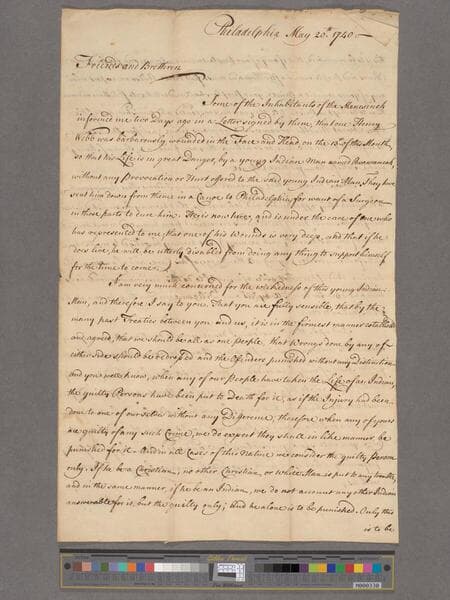 Philadelphia May 20th 1740.—
Friends and Brethren
Some of the Inhabitants of the Menesineck
informed me two Days ago in a Letter signed by them, that one Henry
Webb was barbarously wounded in the Face and Head on the 13th of this Month,
so that his Life is in great Danger, by a young Indian Man named
without any Provocation or Hurt offered to the said young Indian Man. They have
sent him down from thence in a Canoe to Philadelphia, for want of a Surgeon
in those parts to cure him. He is now here, and is under the care of One who
has represented to me, that one of his Wounds is very deep, and that if he
does live, he will be utterly disabled from doing any thing to support himself
for the time to come.
I am very much concerned for the wickedness of this young Indian
Man, and therefore I say to you, That you are fully sensible, that by the
many past Treaties between you and us, it is in the firmest manner established
and agreed, that we should be all as one People, that Wrongs done by any of
either side should be redressed and the Offenders punished without any Distinction.
And you well know, when any of our People have taken the Life of an Indian,
the guilty Persons have been put to Death for it, as if the Injury had been
done to one of our selves without any Difference, therefore when any of yours
are guilty of any such Crime, we do expect they shall in like manner be
punished for it. And in all Cases of this Nature we consider the guilty person
only. If he be a Christian, no other Christian or White Man is put to any trouble,
and in the same manner, if he be an Indian, we do not account any other Indian
answerable for it, but the guilty only, and he alone is to be punished. Only this
is to be